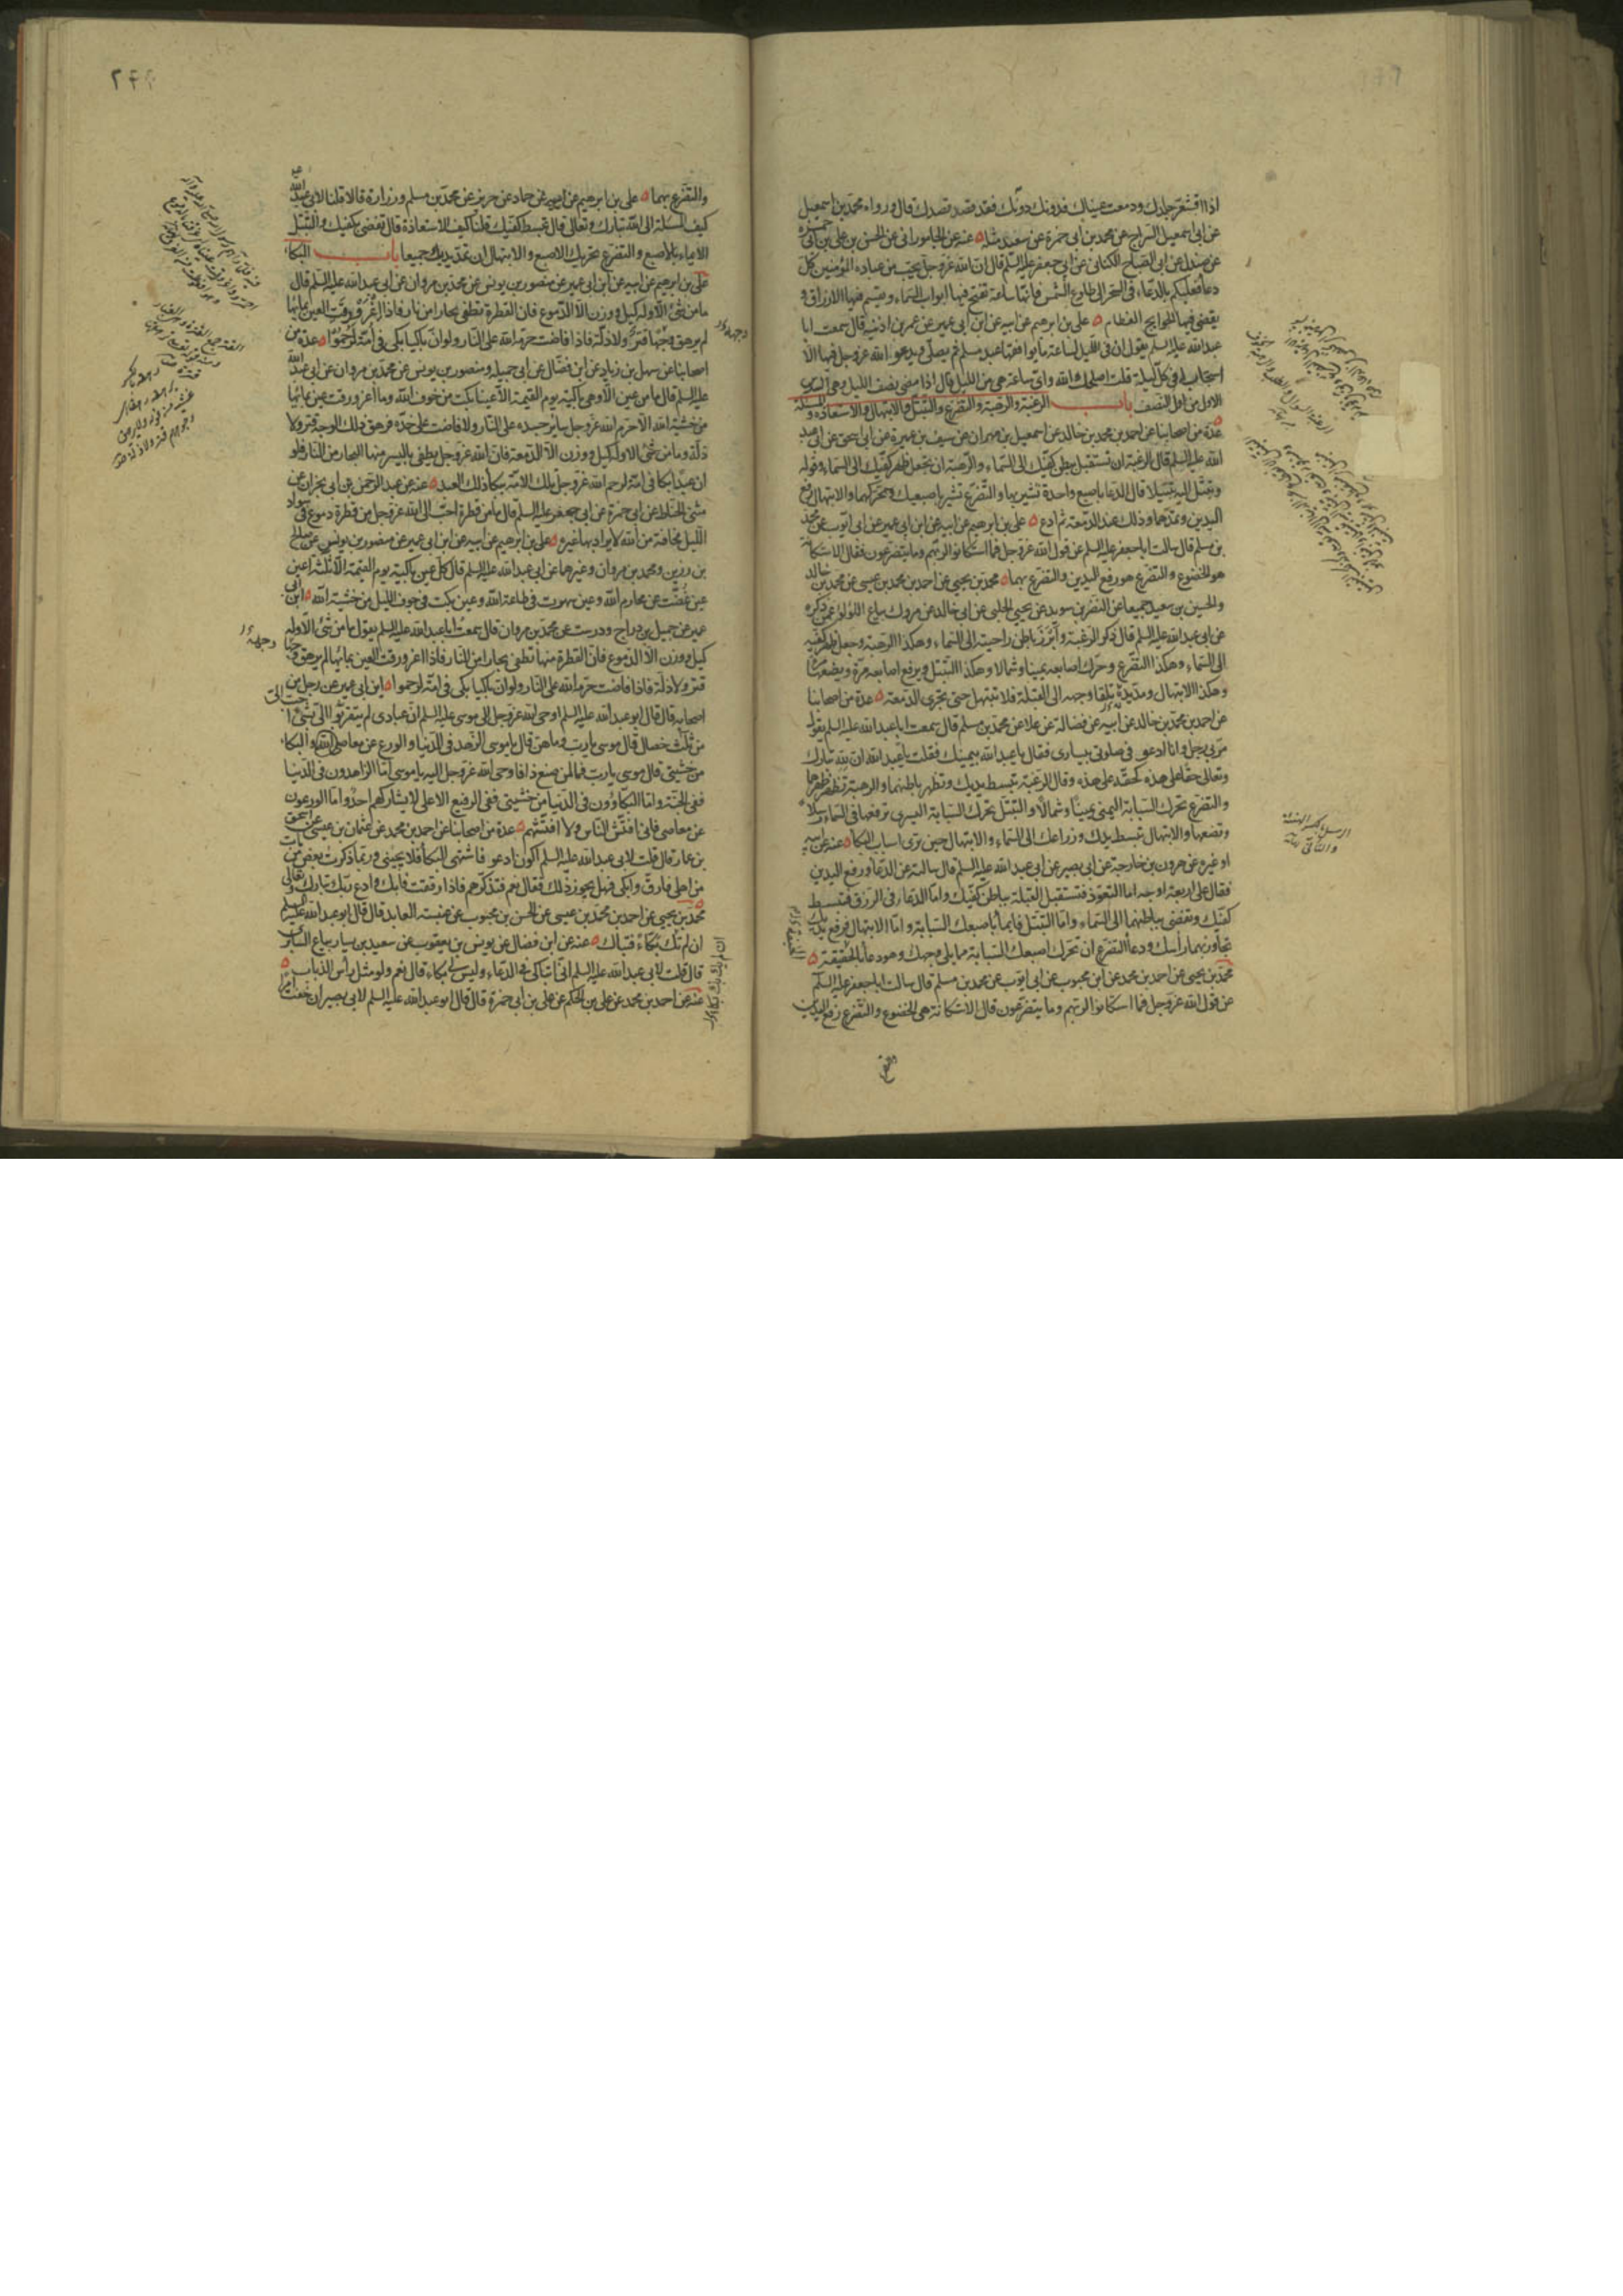 اذا اقشعر جلدك ودمعت عيناك فدونك دونك فقد قصد قصدك قال ورواه محمد بن اسمعيل
عن ابى اسمعيل السراج عن محمد بن ابى حمزة عن سعيد مثله عنه عن الجامورانى عن الحسن بن على بن ابى حمزة
عن صندل عن ابى الصباح الكنانى عن ابى جعفر عليه السلم قال ان الله عز وجل يحب من عباده المؤمنين كل
دعاء فعليكم بالدعاء فى السحر الى طلوع الشمس فانها ساعة تفتح فيها ابواب السماء وتقسم فيها الارزاق و
يقضى فيها الحوايج العظام على بن ابرهيم عن ابيه عن ابن ابى عمير عن عمر بن اذينة قال سمعت ابا
عبد الله عليه السلم يقول ان فى الليل لساعة ما يوافقها عبد مسلم ثم يصلى ويدعو الله عز وجل فيها الا
استجاب له فى كل ليلة قلت اصلحك الله واى ساعة هى من الليل قال اذا مضى نصف الليل وهى السدس
الاول من اول النصف باب الرغبة والرهبة والتضرع والتبتل والابتهال والاستعاذة والمسئلة
عدة من اصحابنا عن احمد بن محمد بن خالد عن اسمعيل بن مهران عن سيف بن عميرة عن ابى اسحق عن ابى عبد
الله عليه السلم قال الرغبة ان تستقبل ببطن كفيك الى السماء والرهبة ان تجعل ظهر كفيك الى السماء وقوله
وتبتل اليه تبتيلا قال الدعاء باصبع واحدة تشير بها والتضرع تشير باصبعيك وتحركهما والابتهال رفع
اليدين وتمدهما وذلك عند الدمعة ثم ادع على بن ابرهيم عن ابيه عن ابن ابى عمير عن ابى ايوب عن محمد
بن مسلم قال سالت ابا جعفر عليه السلم عن قول الله عز وجل فما استكانوا لربهم وما يتضرعون فقال الاستكانة
هو الخضوع والتضرع هو رفع اليدين والتضرع بهما محمد بن يحيى عن احمد بن محمد بن عيسى عن محمد بن خالد
والحسين بن سعيد جميعا عن النضر بن سويد عن يحيى الحلبى عن ابى خالد عن مروك بياع اللؤلؤ عمن ذكره
عن ابى عبد الله عليه السلم قال ذكر الرغبة وابرز باطن راحيته الى السماء وهكذا الرهبة وجعل ظهر كفيه
الى السماء وهكذا التضرع وحرك اصابعه يمينا وشمالا وهكذا التبتل ويرفع اصابعه مرة ويضعها مرة
وهكذا الابتهال ومد يده تلقاء وجهه الى القبلة فلا تبتهل حتى تجرى الدمعة عدة من اصحابنا
عن احمد بن محمد بن خالد عن ابيه عن فضالة عن علا عن محمد بن مسلم قال سمعت ابا عبد الله عليه السلم يقول
مر بى رجل وانا ادعو فى صلوتى بيسارى فقال يا عبد الله بيمينك فقلت يا عبد الله ان لله تبارك
وتعالى حقا على هذه كحقه على هذه وقال الرغبة تبسط يديك وتظهر باطنهما والرهبة تظهر ظهرهما
والتضرع تحرك السبابة اليمنى يمينا وشمالا والتبتل تحرك السبابة اليسرى ترفعها فى السماء رسلا
وتضعها والابتهال تبسط يدك وذراعك الى السماء والابتهال حين ترى اسباب البكاء عنه عن ابيه
او غيره عن هرون بن خارجة عن ابى بصير عن ابى عبد الله عليه السلم قال سالته عن الدعاء ورفع اليدين
فقال على اربعة اوجه اما التعوذ فتستقبل القبلة بباطن كفيك واما الدعاء فى الرزق فتبسط
كفيك وتفضى بباطنهما الى السماء واما التبتل فايماء باصبعك السبابة واما الابتهال فرفع يديك
تجاوز بهما راسك ودعاء التضرع ان تحرك اصبعك السبابة مما يلى وجهك وهو دعاء الخيفة
محمد بن يحيى عن احمد بن محمد عن ابن محبوب عن ابى ايوب عن محمد بن مسلم قال سالت ابا جعفر عليه السلم
عن قول الله عز وجل فما استكانوا لربهم وما يتضرعون قال الاستكانة هى الخضوع والتضرع رفع اليدين
والتضرع
والتضرع بهما على بن ابرهيم عن ابيه عن حماد عن حريز عن محمد بن مسلم وزرارة قالا قلنا لابى عبد الله
كيف المسئلة الى الله تبارك وتعالى قال تبسط كفيك قلنا كيف الاستعاذة قال تفضى بكفيك والتبتل
الايماء بالاصبع والتضرع تحريك الاصبع والابتهال ان تمد يديك جميعا باب البكاء
على بن ابرهيم عن ابيه عن ابن ابى عمير عن منصور بن يونس عن محمد بن مروان عن ابى عبد الله عليه السلم قال
ما من شئ الا وله كيل ووزن الا الدموع فان القطرة تطفى بحارا من نار فاذا اغرورقت العين بمائها
لم يرهق وجهها قتر ولا ذلة فاذا فاضت حرمه الله على النار ولو ان باكيا بكى فى امة لرحموا عدة من
اصحابنا عن سهل بن زياد عن ابن فضال عن ابى جميله ومنصور بن يونس عن محمد بن مروان عن ابى عبد الله
عليه السلم قال ما من عين الا وهى باكية يوم القيمة الا عينا بكت من خوف الله وما اغرورقت عين بمائها
من خشية الله الا حرم الله عز وجل ساير جسده على النار ولا فاضت على خده فرهق ذلك الوجه قتر ولا
ذلة وما من شئ الا وله كيل ووزن الا الدمعة فان الله عز وجل يطفى باليسير منها البحار من النار فلو
ان عبدا بكا فى امة لرحم الله عز وجل تلك الامة ببكاء ذلك العبد عنه عن عبد الرحمن بن ابى نجران عن
مثنى الحناط عن ابى حمزة عن ابى جعفر عليه السلم قال ما من قطرة احب الى الله عز وجل من قطرة دموع فى سواد
الليل مخافة من الله لا يراد بها غيره على بن ابرهيم عن ابيه عن ابن ابى عمير عن منصور بن يونس عن صالح
بن رزين ومحمد بن مروان وغيرهما عن ابى عبد الله عليه السلم قال كل عين باكية يوم القيمة الا ثلثة اعين
عين غضت عن محارم الله وعين سهرت فى طاعة الله وعين بكت فى جوف الليل من خشية الله ابن ابى
عمير عن جميل بن دراج ودرست عن محمد بن مروان قال سمعت ابا عبد الله عليه السلم يقول ما من شئ الا وله
كيل ووزن الا الدموع فان القطرة منها تطفى بحارا من النار فاذا اغرورقت العين بمائها لم يرهق وجهها
قتر ولا ذلة فاذا فاضت حرمه الله على النار ولو ان باكيا بكى فى امة لرحموا ابن ابى عمير عن رجل من
اصحابه قال قال ابو عبد الله عليه السلم اوحى الله عز وجل الى موسى عليه السلم ان عبادى لم يتقربوا الى بشئ احب الى
من ثلث خصال قال موسى يا رب وما هن قال يا موسى الزهد فى الدنيا والورع عن معاصى الله والبكاء
من خشيتى قال موسى يا رب فما لمن صنع ذا فاوحى الله عز وجل اليه يا موسى اما الزاهدون فى الدنيا
ففى الجنة واما البكاؤون فى الدنيا من خشيتى ففى الرفيع الاعلى لا يشاركهم احد واما الورعون
عن معاصى فانى افتش الناس ولا افتشهم عدة من اصحابنا عن احمد بن محمد عن عثمان بن عيسى عن اسحق
بن عمار قال قلت لابى عبد الله عليه السلم اكون ادعو فاشتهى البكاء فلا يجيئنى وربما ذكرت بعض من مات
من اهلى فارق وابكى فهل يجوز ذلك فقال نعم فتذكرهم فاذا رققت فابك وادع ربك تبارك وتعالى
محمد بن يحيى عن احمد بن محمد بن عيسى عن الحسن بن محبوب عن عنبسة العابد قال قال ابو عبد الله عليه السلم
ان لم تك بكاء فتباك عنه عن ابن فضال عن يونس بن يعقوب عن سعيد بن يسار بياع السابرى
قال قلت لابى عبد الله عليه السلم انى اتباكى فى الدعاء وليس لى بكاء قال نعم ولو مثل راس الذباب
عنه عن احمد بن محمد عن على بن الحكم عن على بن ابى حمزة قال قال ابو عبد الله عليه السلم لابى بصير ان خفت امرا